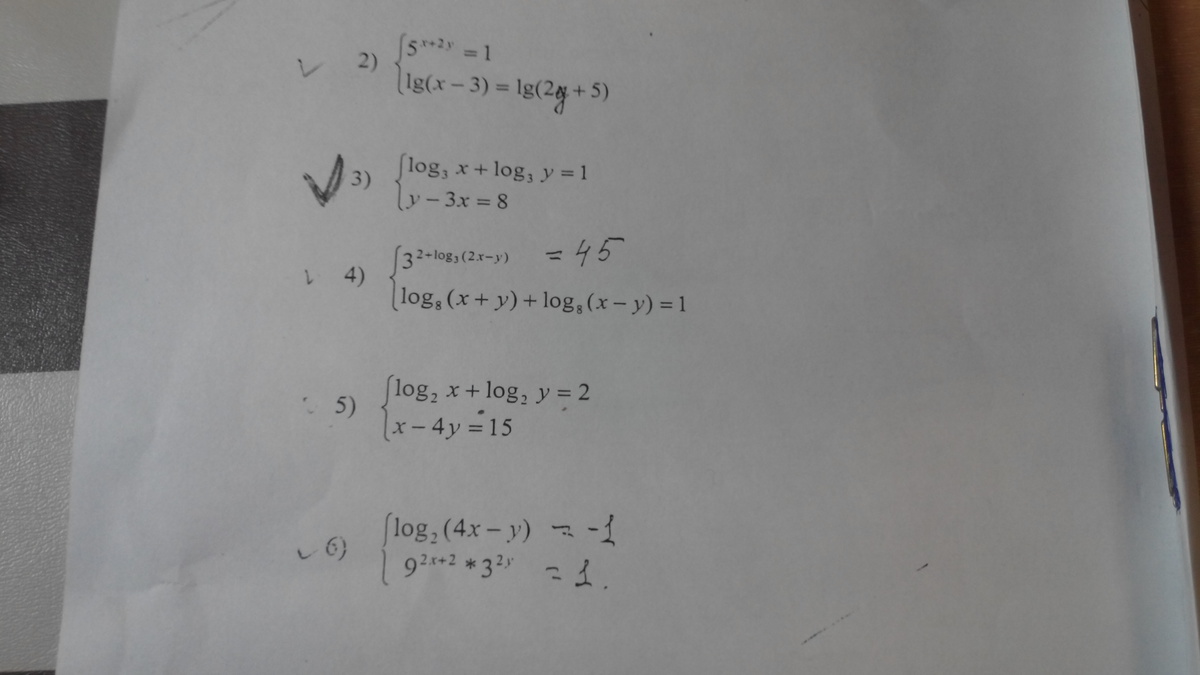 2) {5^{x+2y} = 1
lg(x − 3) = lg(2y + 5)
3) {log₃ x + log₃ y = 1
y − 3x = 8
4) {3^{2+log₃(2x−y)} = 45
log₈(x + y) + log₈(x − y) = 1
5) {log₂ x + log₂ y = 2
x − 4y = 15
6) {log₂(4x − y) = -1
9^{2x+2} * 3^{2y} = 1.